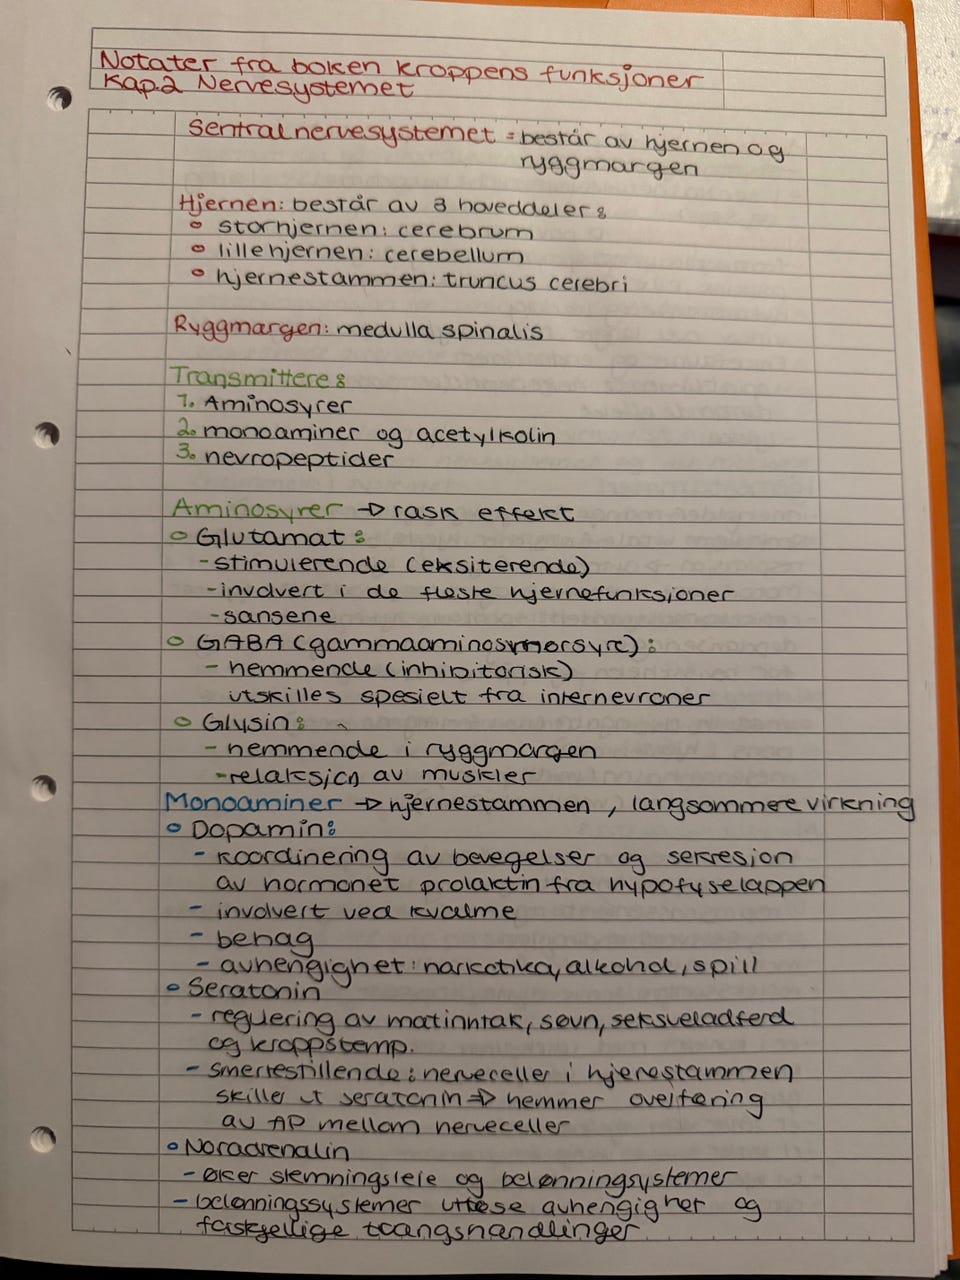 Notater fra boken kroppens funksjoner
Kap.2 Nervesystemet
Sentralnervesystemet = består av hjernen og
ryggmargen
Hjernen: består av 3 hoveddeler:
• storhjernen: cerebrum
• lillehjernen: cerebellum
• hjernestammen: truncus cerebri
Ryggmargen: medulla spinalis
Transmittere:
1. Aminosyrer
2. monoaminer og acetylkolin
3. nevropeptider
Aminosyrer → rask effekt
• Glutamat:
- stimulerende (eksiterende)
- involvert i de fleste hjernefunksjoner
- sansene
• GABA (gammaaminosmørsyre):
- hemmende (inhibitorisk)
utskilles spesielt fra internevroner
• Glysin:
- hemmende i ryggmargen
- relaksjon av muskler
Monoaminer → hjernestammen, langsommere virkning
• Dopamin:
- koordinering av bevegelser og sekresjon
av hormonet prolaktin fra hypofyselappen
- involvert ved kvalme
- behag
- avhengighet: narkotika, alkohol, spill
• Seratonin
- reguering av matinntak, søvn, seksueladferd
og kroppstemp.
- smertestillende: nerveceller i hjernestammen
skiller ut seratonin → hemmer overføring
av AP mellom nerveceller
• Noradrenalin
- øker stemningsleie og belønningsystemer
- belønningssystemer uttøse avhengighet og
forskjellige tvangshandlinger